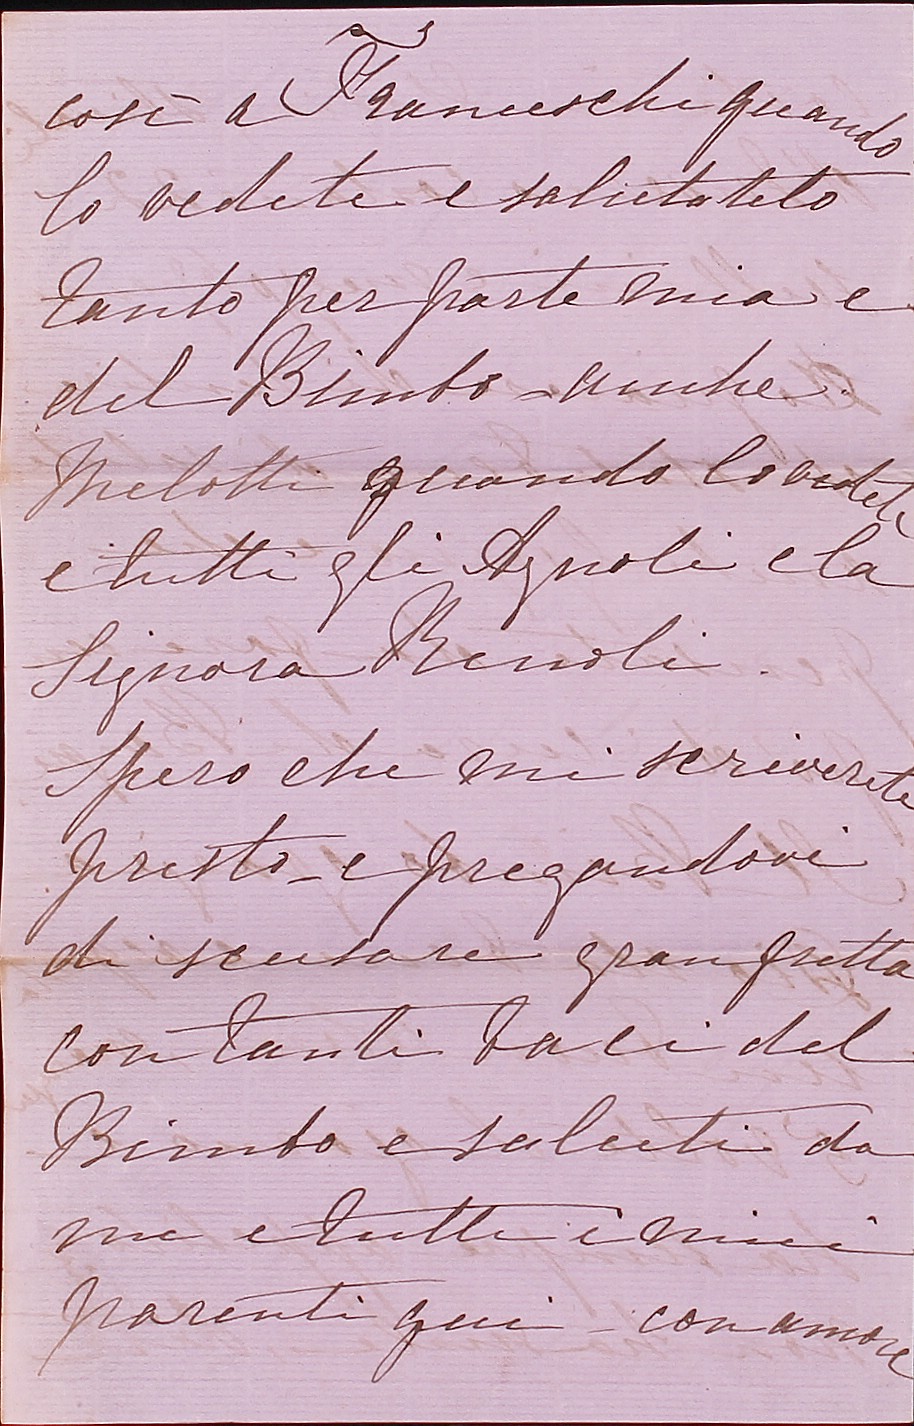 così a Franceschi quando
lo vedete e salutatelo
tanto per parte mia e
del Bimbo - anche
Melotti quando lo vedete
e tutti gli Agnoli e la
Signora Renoli.
Spero che mi scriverete
presto - e pregandovi
di scusare gran fretta
con tanti baci del
Bimbo e saluti da
me e tutti i miei
parenti qui - con amore